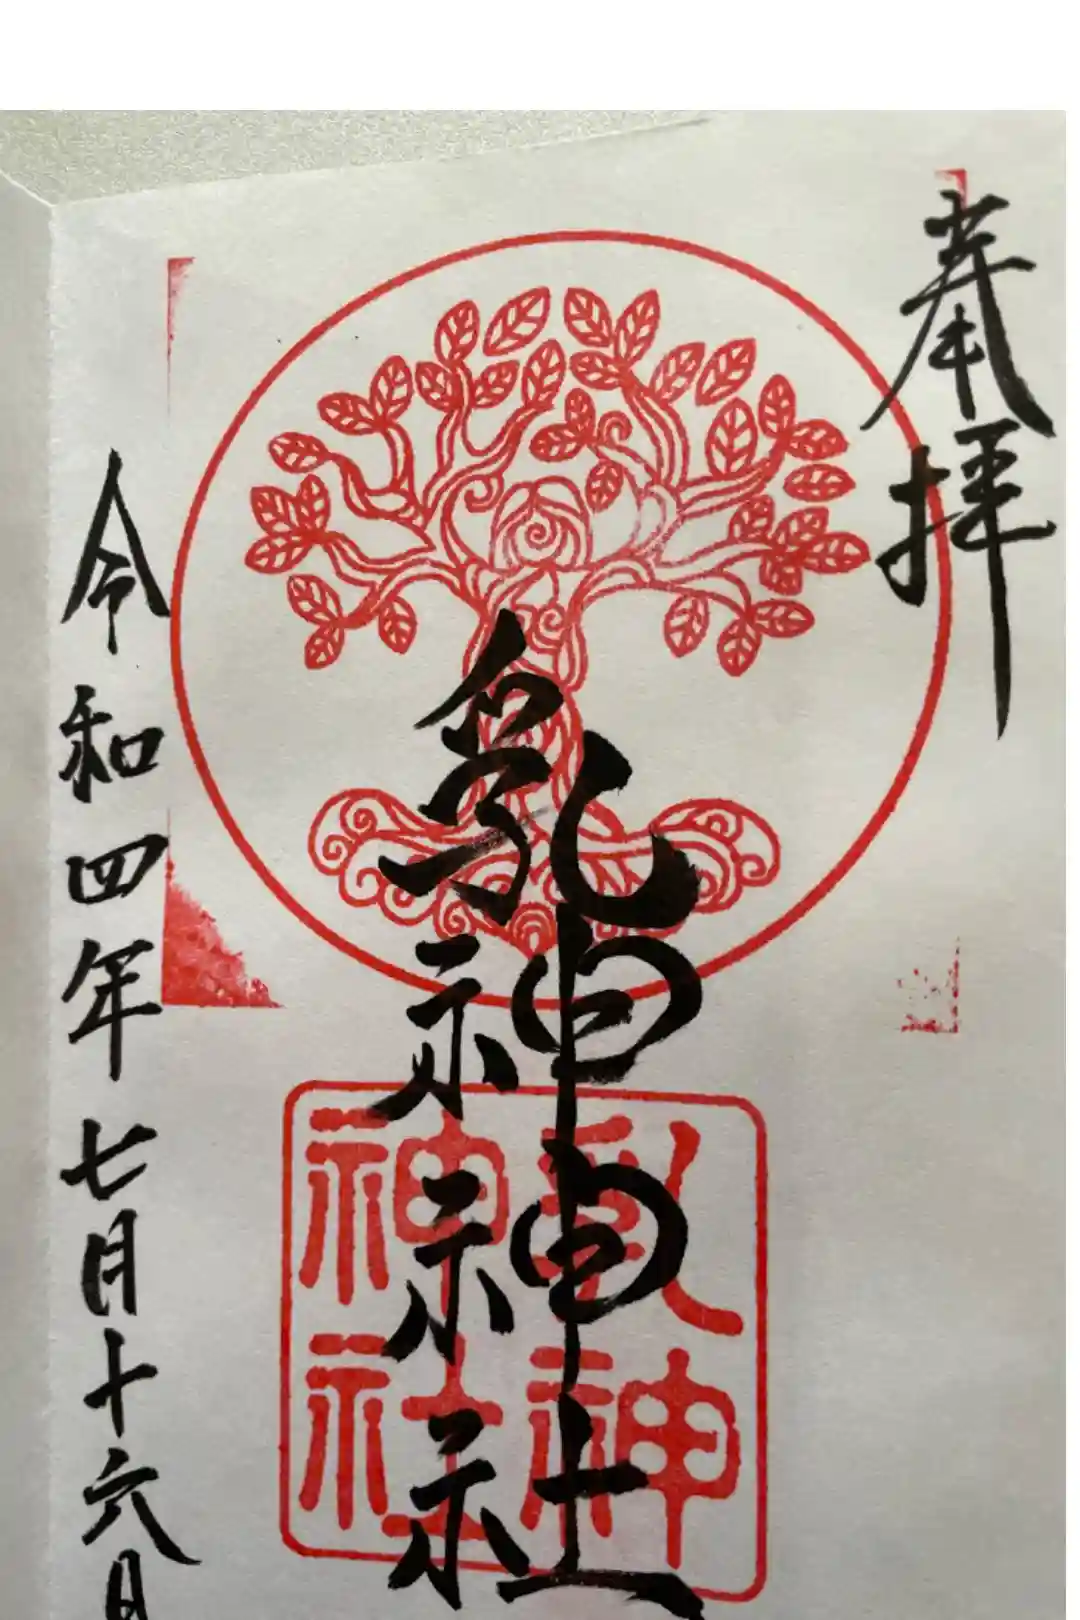 奉拝
乳神神社
乳神
神社
令和四年七月十六日